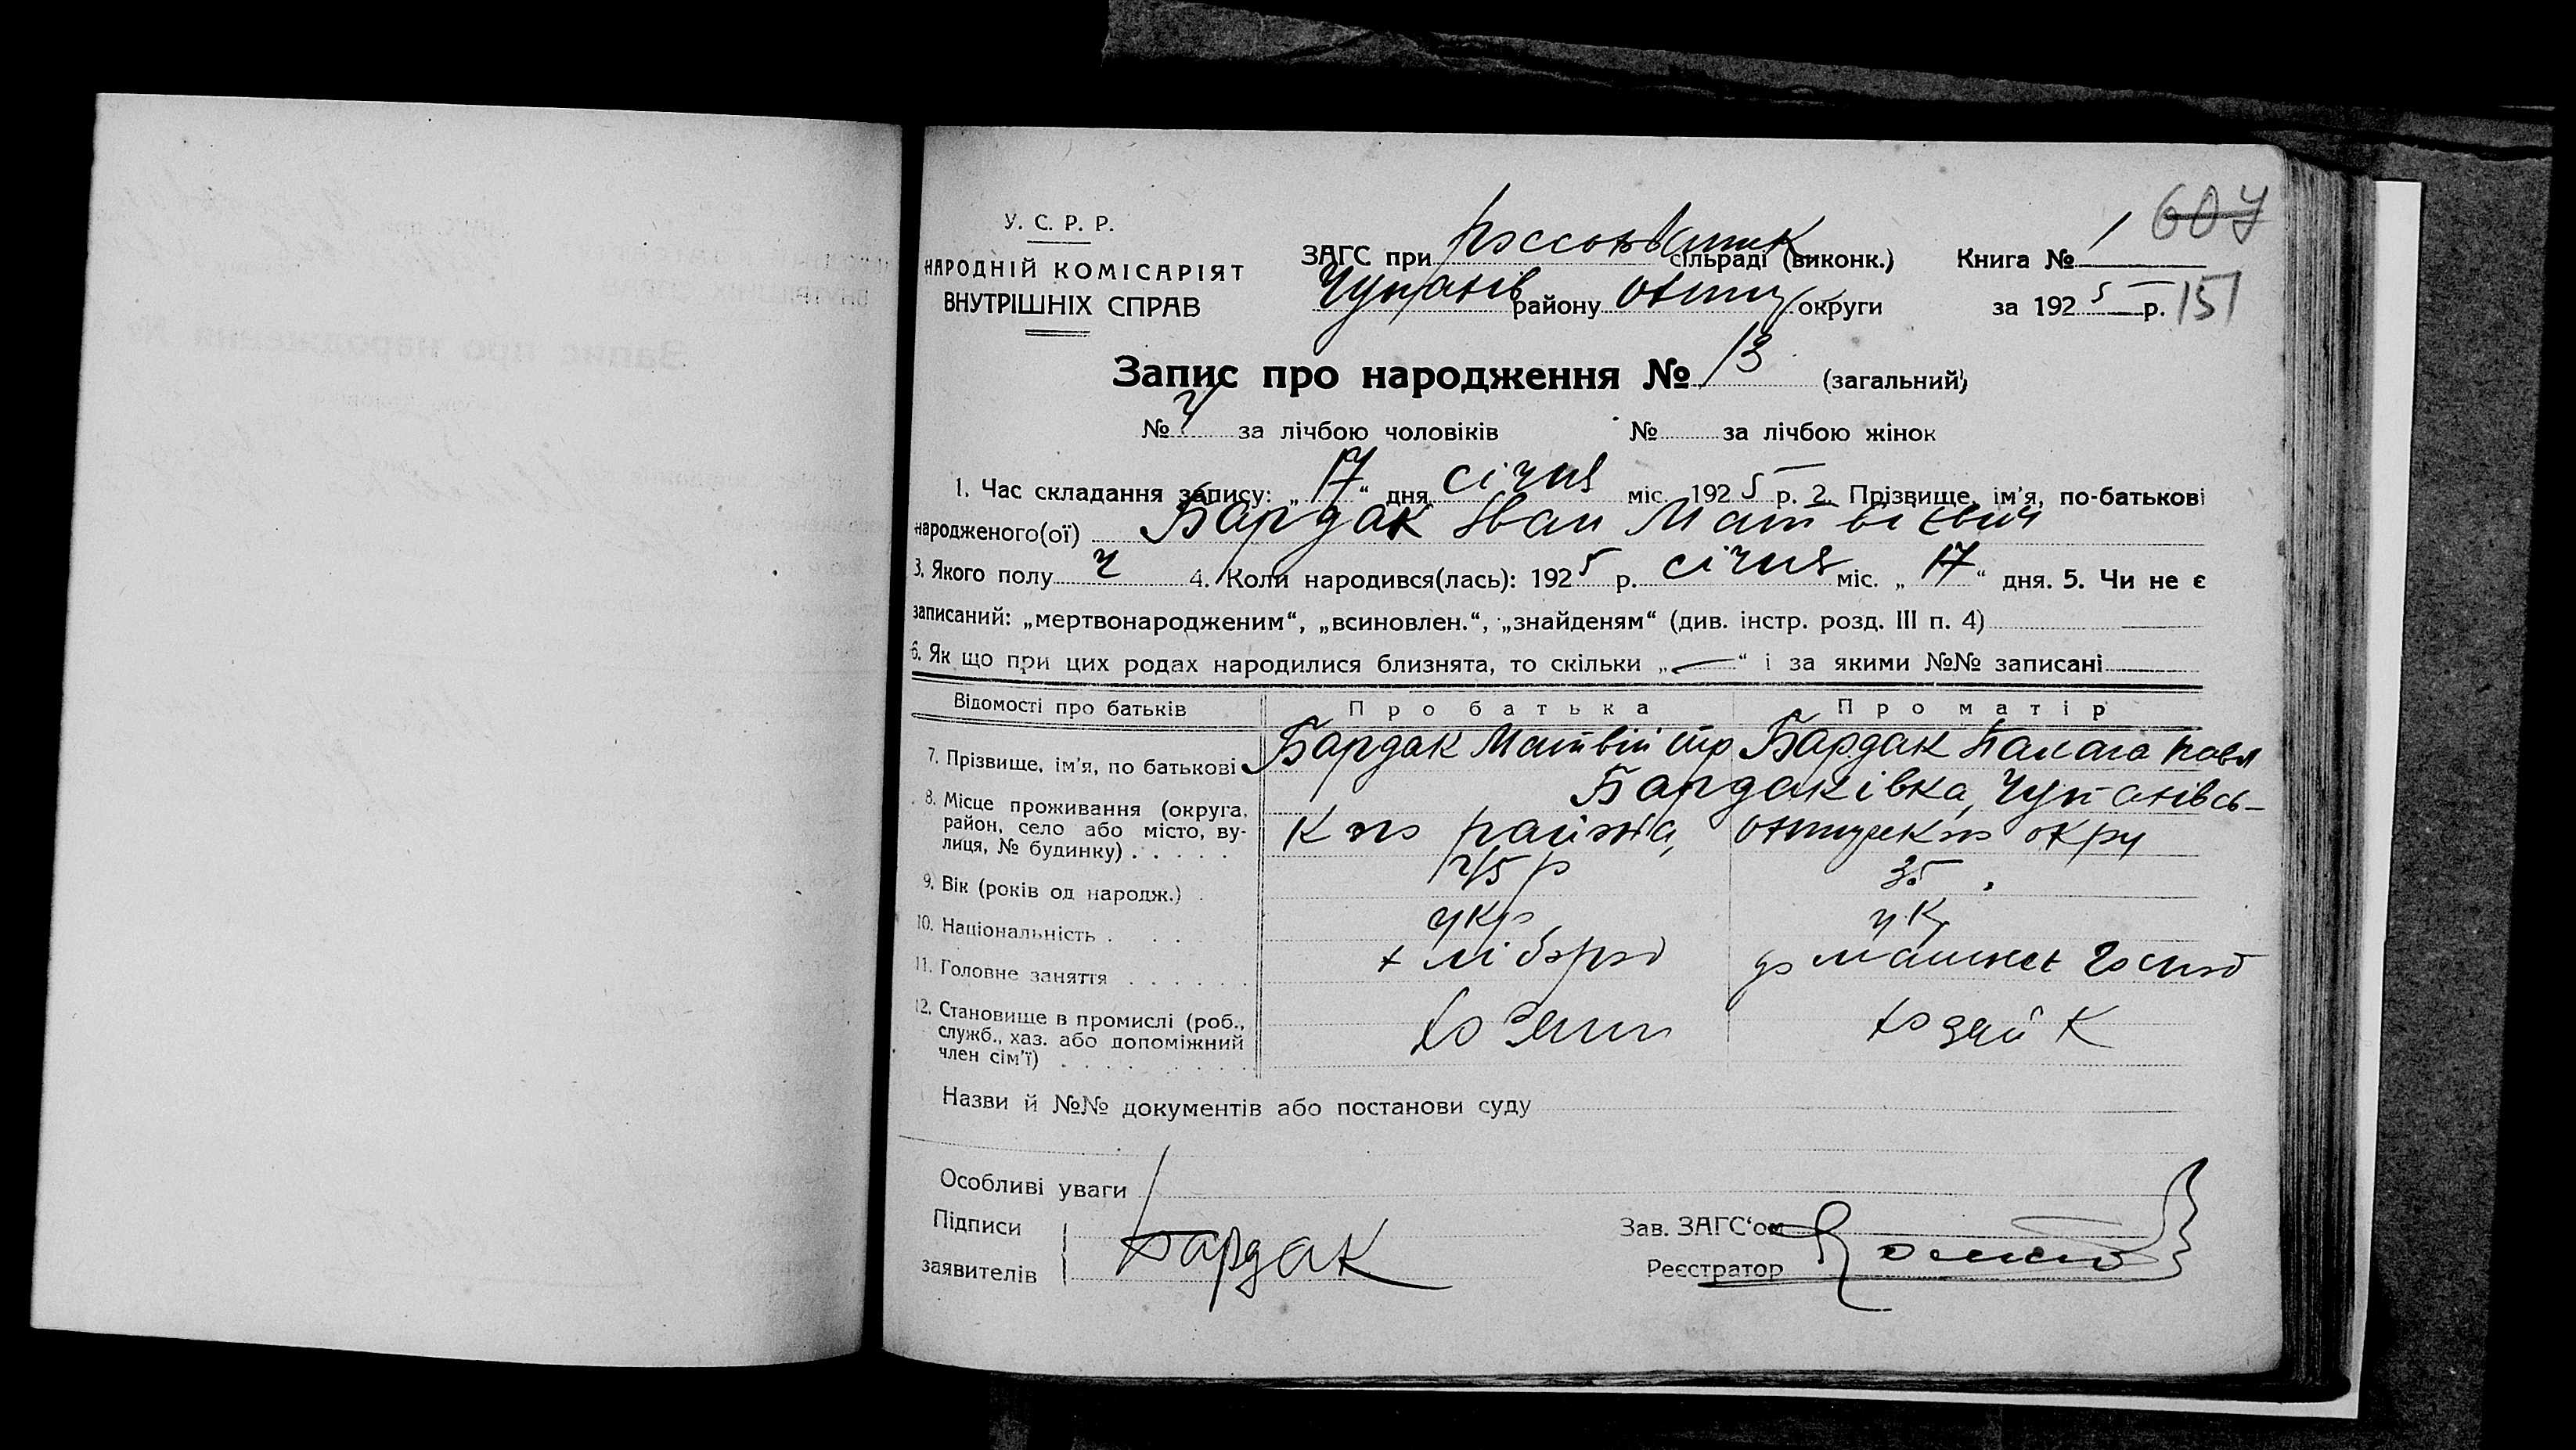 607
У. С. Р. Р.
НАРОДНІЙ КОМІСАРІЯТ
ВНУТРІШНІХ СПРАВ
ЗАГС при сільраді (виконк.) Книга № 1
Чупахів району Охтир округи за 1925 р. 151
Запис про народження № 13 (загальний)
№ 7 за лічбою чоловіків № за лічбою жінок
1. Час складання запису: „17“ дня січня міс. 1925 р. 2. Прізвище, ім’я, по-батькові
народженого(ої) Бардак Іван Матвієвич
3. Якого полу ч 4. Коли народився(лась): 1925 р. січня міс. „17“ дня. 5. Чи не є
записаний: „мертвонародженим“, „всиновлен.“, „знайденям“ (див. інстр. розд. III п. 4)
6. Як що при цих родах народилися близнята, то скільки „—“ і за якими №№ записані
Відомості про батьків Про батька Про матір
7. Прізвище, ім’я, по батькові Бардак Матвій Бардак Палага Павл
8. Місце проживання (округа, Бардаківка, Чупахівсь-
район, село або місто, ву- кого району, Охтирськ окру
лиця, № будинку)
9. Вік (років од народж.) 45 р 35 „
10. Національність укр ук
11. Головне заняття хлібороб домашнє господ
12. Становище в промислі (роб., хозяин хозяйк
служб., хаз. або допоміжний
член сім’ї)
Назви й №№ документів або постанови суду
Особливі уваги
Підписи Зав. ЗАГС‘ом
заявителів Бардак Реєстратор